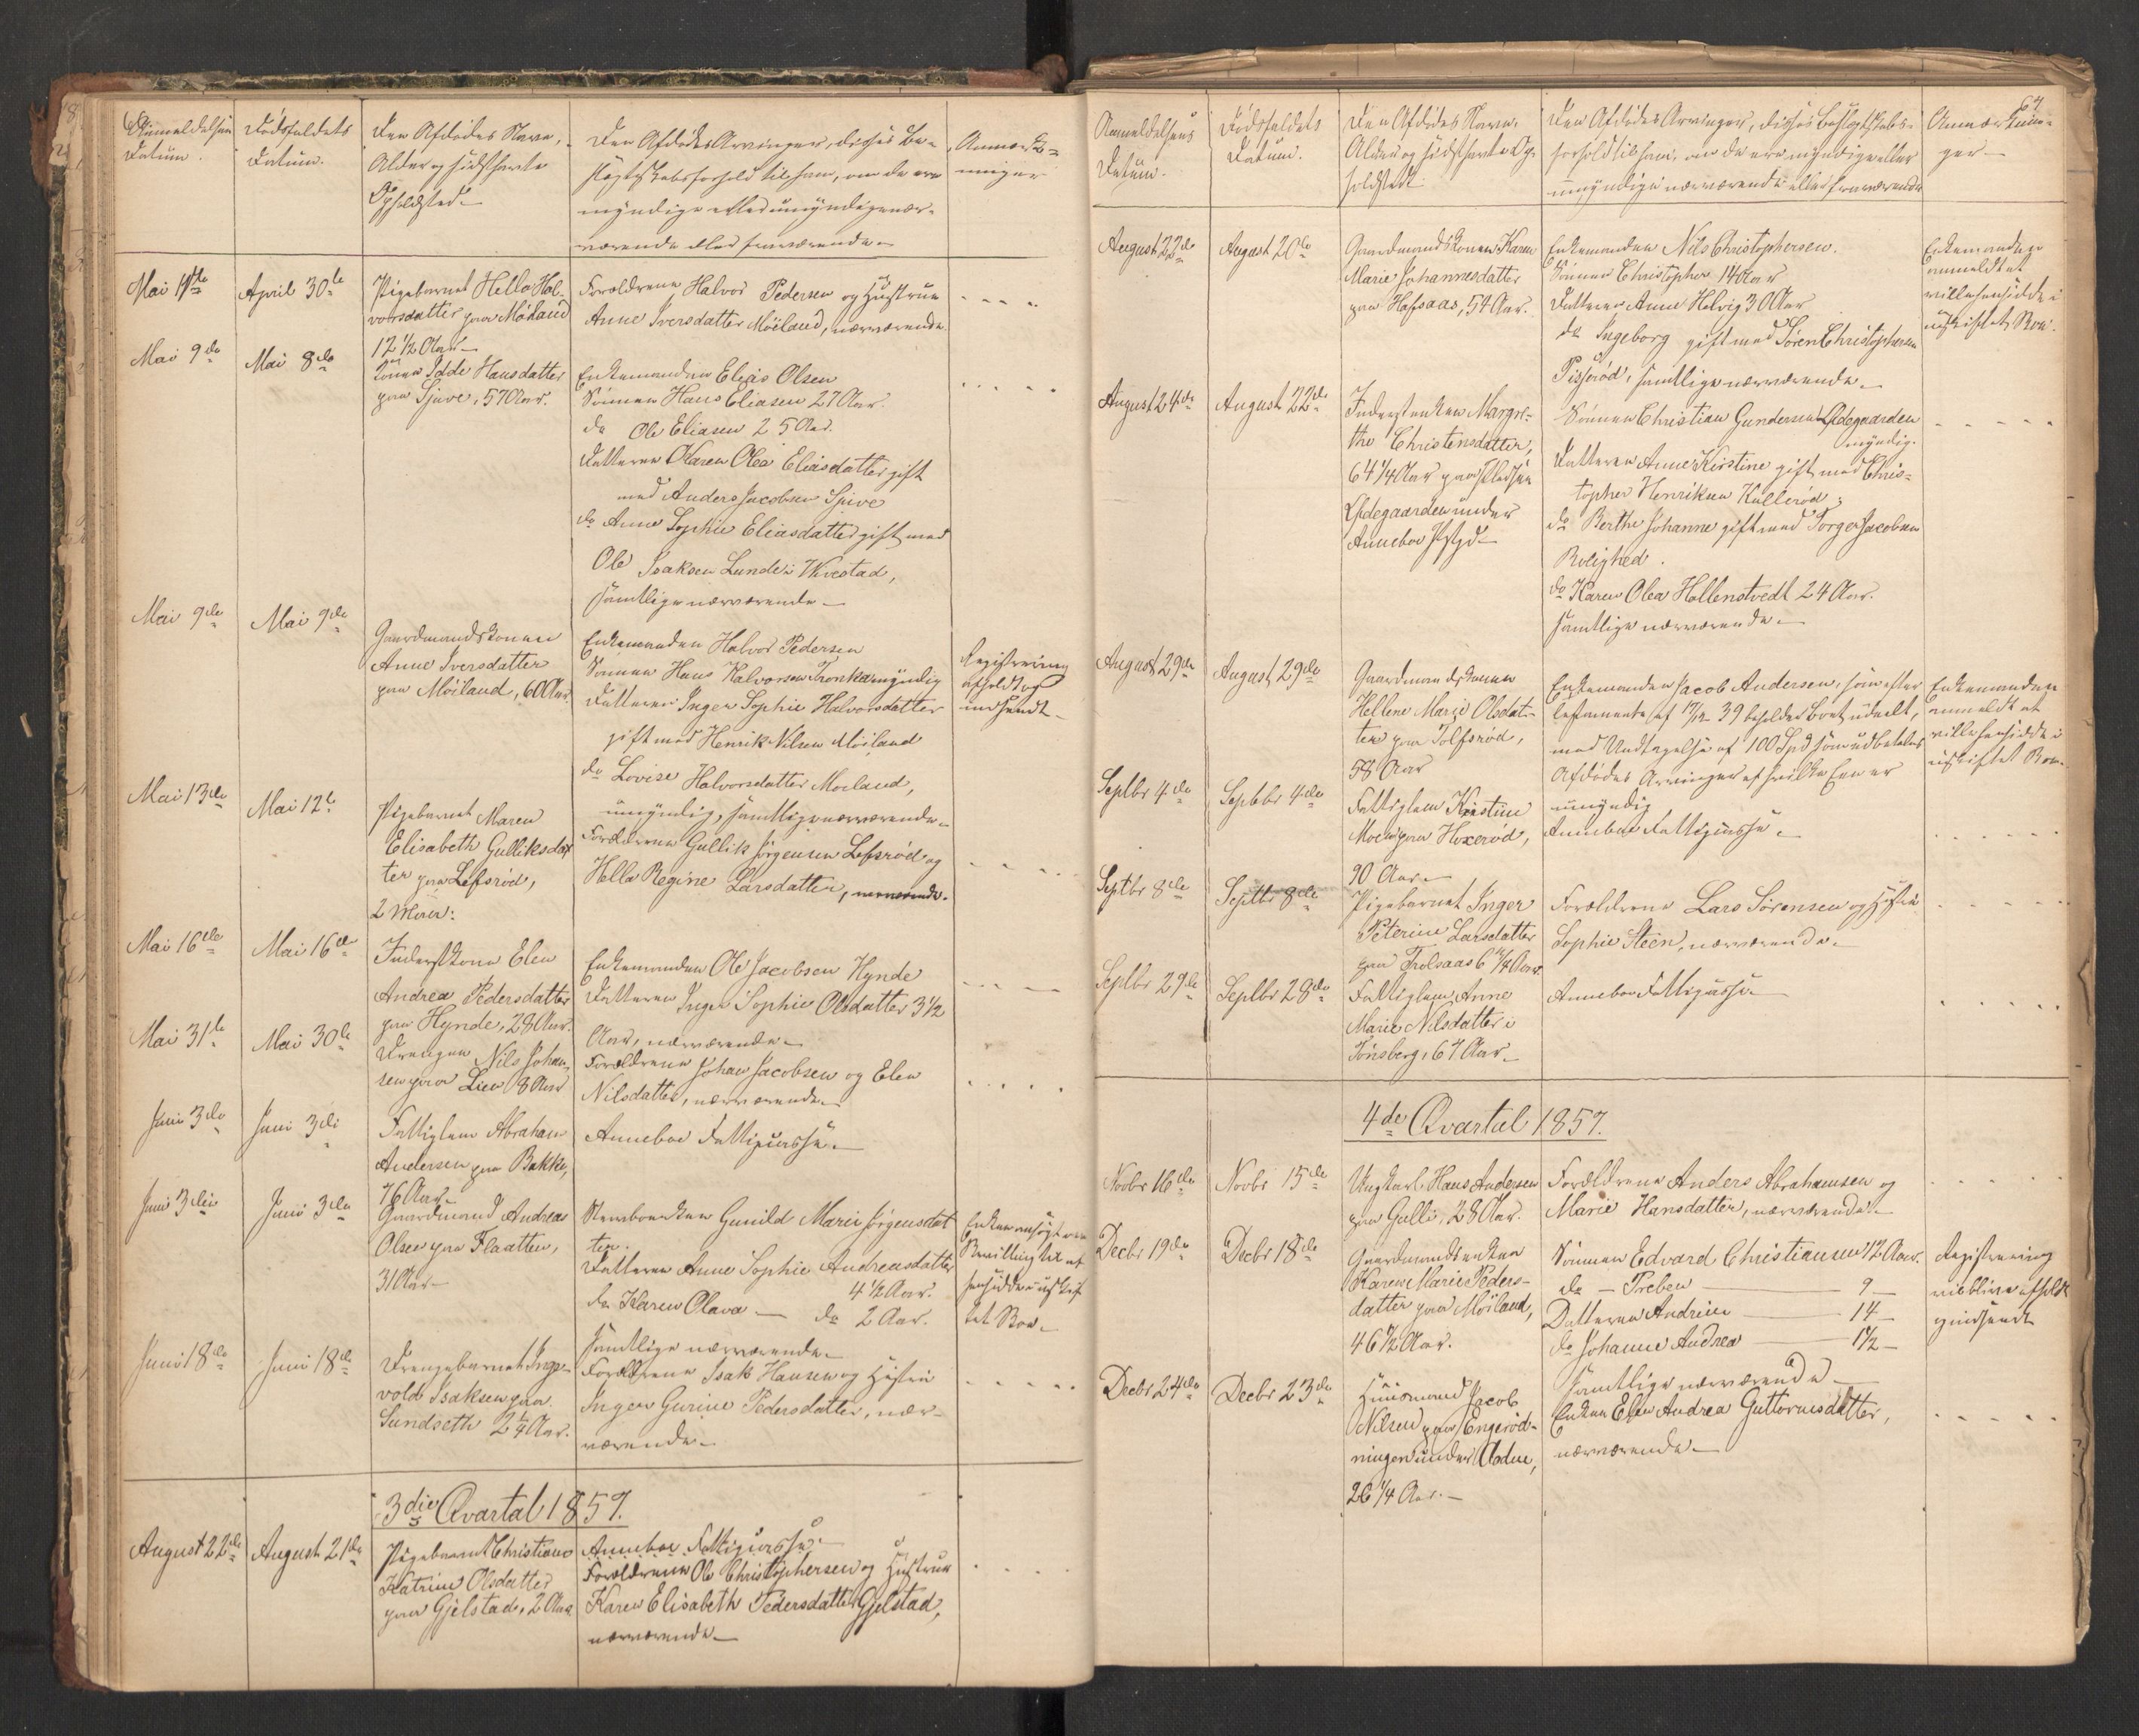 Anmeldelsens
Datum.
Dødsfaldets
Datum.
Den Afdødes Navn,
Alder og sidst havte
Opholdsted.
Den Afdødes Arvinger, disses Be-
slægtskabsforhold til ham, om de ere
myndige eller umyndige nær-
værende eller fraværende.
Anmærk-
ninger
Mai
April 30te
Pigebarnet Hella Hal-
vorsdatter paa Möiland
12 1/2 Aar
Forældrene Halvor Pedersen og Hustrue
Anne Iversdatter Möiland, nærværende.
Mai 9de
Mai 8de
Konen Idde Hansdatter
paa Sjuve, 57 Aar.
Enkemanden Elias Olsen
Sønnen Hans Eliasen 27 Aar.
do Ole Eliasen 25 Aar.
Datteren Karen Olea Eliasdatter gift
med Anders Jacobsen Sjuve
do Anne Sophie Eliasdatter gift med
Ole Isaksen Lunde i Wivestad,
samtlige nærværende
Mai 9de
Mai 9de
Gaardmandskonen
Anne Iversdatter
paa Möiland, 60 Aar.
Enkemanden Halvor Pedersen
Sønnen Hans Halvorsen myndig
Datteren Inger Sophie Halvorsdatter
gift med Henrik Nilsen Möiland
do Lovise Halvorsdatter Moiland,
umyndig, samtlige nærværende.
Registrering
afholdt og
indsendt
Mai 13de
Mai 12te
Pigebarnet Maren
Elisabeth Gulliksdat
ter paa Lefsröd,
2 Mdr:
Forældrene Gullik Jörgensen Lefsröd og
Hella Regine Larsdatter, nærværende.
Mai 16de
Mai 16de
Inderstkone Elen
Andrea Pedersdatter
paa Hynde, 28 Aar.
Enkemanden Ole Jacobsen Hynde
Datteren Inger Sophie Olsdatter 3 1/2
Aar, nærværende
Mai 31te
Mai 30te
Drengen Nils Johan-
sen paa Lien 8 Aar
Forældrene Johan Jacobsen og Elen
Nilsdatter, nærværende
Juni 3de
Juni 3de
Fattiglem Abraham
Andersen paa Bakke,
76 Aar
Anneboe Fattigcasse.
Juni 3die
Juni 3die
Gaardmand Andreas
Olsen paa Flaatten,
31 Aar
Gunild Marie Jörgensdat
ter.
Datteren Anne Sophie Andreasdatter
4 1/2 Aar.
do Karen Olava — do 2 Aar.
samtlige nærværende.
Enken ansøgt om
Bevilling til at
hensidde i uskif
tet Boe
Juni 18de
Juni 18de
Drengebarnet Inge-
vold Isaksen paa
Sundseth 2 1/4 Aar.
Forældrene Isak Hansen og Hustru
Inger Gurine Pedersdatter, nær-
værende
3die Qvartal 1857.
August 22de
August 21de
Pigebarnet Christiane
Katrine Olsdatter
paa Gjelstad, 2 Aar
Anneboe Fattigcasse.
Forældrene Ole Christophersen og Hustrue
Karen Elisabeth Pedersdatter Gjelstad,
nærværende
64
Anmeldelsens
Datum.
Dødsfaldets
Datum.
Den Afdødes Navn,
Alder og sidst havte Op-
holdsted
Den Afdødes Arvinger, disses Beslægtskabs-
forhold til ham, om de ere myndige eller
umyndige nærværende eller fraværende
Anmærknin-
ger
August 22de
August 20de
Gaardmandskonen Karen
Marie Johannesdatter
paa Hafsaas, 54 Aar.
Enkemanden Nils Christophersen.
Sønnen Christopher 14 Aar
Datteren Anne Helvig 30 Aar
do Ingeborg gift med Sören Christophersen
samtlige nærværende.
Enkemanden
anmeldt at
ville hensidde i
uskiftet Boe.
August 24de
August 22de
Inderstenken Margre-
the Christensdatter,
64 1/4 Aar paa Pladsen
Ødegaarden under
Anneboe
Sønnen Christian Gundersen Ødegaarden
myndig.
Datteren Anne Kirstine gift med Chris-
topher Henriksen Kulleröd;
do Berthe Johanne gift med Torger Jacobsen
Rolighed.
do Karen Olea Hollenstvedt 24 Aar.
samtlige nærværende.
August 29de
August 29de
Gaardmandskonen
Hellene Marie Olsdat-
ter paa Tolfsröd,
58 Aar
Enkemanden Jacob Andersen, som efter
Testamente af 17/12 39 beholder Boet udeelt,
med Undtagelse af 100 Spd som udbetales
Afdødes Arvinger af hvilke Een er
umyndig
Enkemanden
anmeldt at
ville hensidde i
uskiftet Boe.
Septbr 4de
Septbr 4de
Fattiglem Kirstine
Moe paa Hoxeröd,
90 Aar
Anneboe Fattigcasse.
Septbr 8de
Septbr 8de
Pigebarnet Inger
Peterine Larsdatter
paa Trolsaas 6 1/4 Aar.
Forældrene Lars Sörensen og Hustru
Sophie Steen, nærværende.
Septbr 29de
Septbr 28de
Fattiglem Anne
Marie Nilsdatter i
Tönsberg, 67 Aar
Anneboe Fattigcasse
4de Qvartal 1857.
Novbr 16de
Novbr 15de
Ungkarl Hans Andersen
paa Gulli, 28 Aar.
Forældrene Anders Abrahamsen og
Marie Hansdatter, nærværende.
Decbr 19de
Decbr 18de
Gaardmandsenken
Karen Marie Peders-
datter paa Möiland,
46 1/2 Aar.
Sønnen Edvard Christiansen 12 Aar.
do — Preben — 9 —
Datteren Andrine — 14 —
do Johanne Andrea — 1 1/2 —
samtlige nærværende
Registrering
vil blive afholdt
og indsendt
Decbr 24de
Decbr 23de
Huusmand Jacob
Nilsen paa Engeröd-
ningen under Adne,
26 1/4 Aar.
Enken Elen Andrea Guttormsdatter,
nærværende